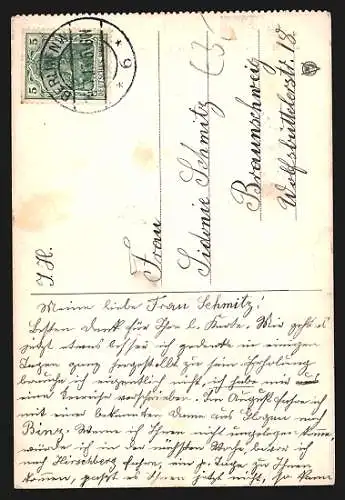 BERLIN NW
5 5
* 9 *
I. H.
Frau
Sidonie Schmitz
Braunschweig
Wolfsbüttlerstr. 18.
Meine liebe Frau Schmitz!
Besten Dank für Ihre l. Karte. Mir geht es
jetzt etwas besser ich gedenke in einigen
Tagen ganz hergestellt zu sein Erholung
brauche ich eigentlich nicht, ich habe nur
eine Seereise vorgeschrieben. Im August fahre ich
mit einer bekannten Dame aus Hagen nach
Binz. Wenn ich Ihnen nicht ungelegen käme,
würde ich in der nächsten Woche bevor ich
nach Hirschberg fahre, ein p. Tage zu Ihnen
kommen, paßt es Ihnen jetzt nicht, so kann